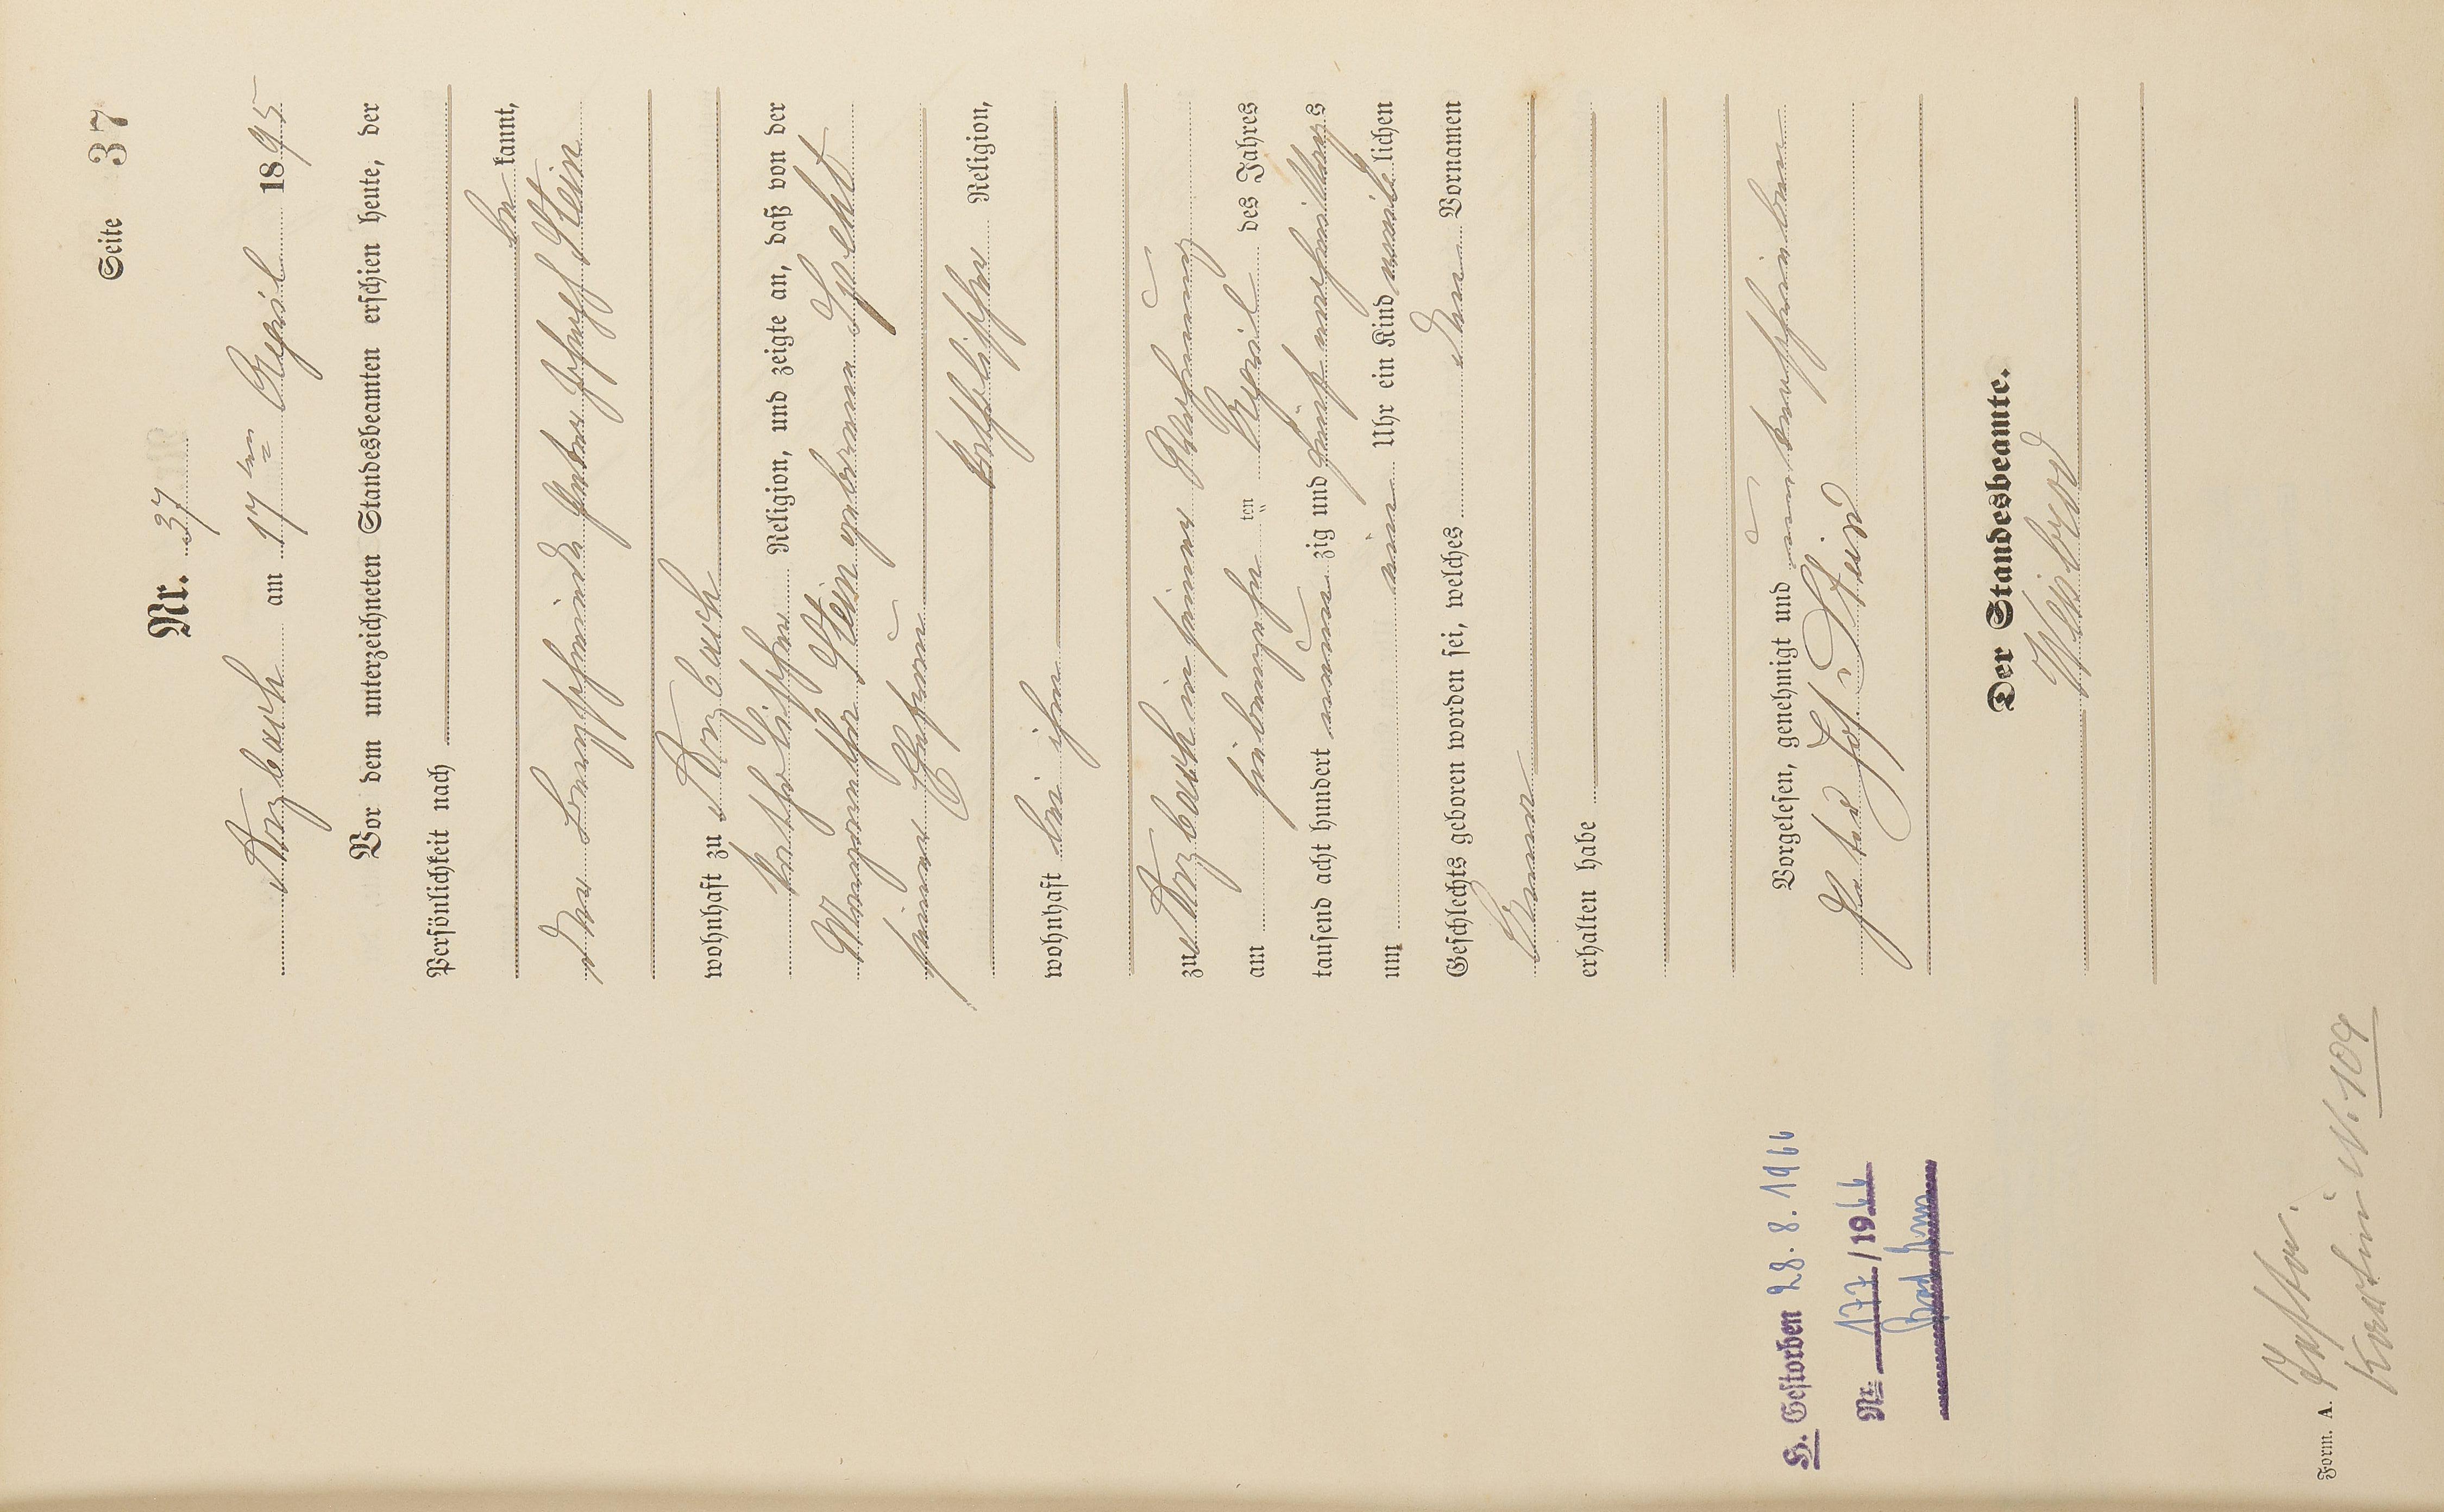 Seite 37
Nr. 37
Arzbach am 17ten April 1895
Vor dem unterzeichneten Standesbeamten erschien heute, der
Persönlichkeit nach
be kannt,
der Bergschmied Peter Joseph Stein
wohnhaft zu Arzbach
katholischer Religion, und zeigte an, daß von der
Margaretha Stein geborenen Specht
seiner Ehefrau
katholischer Religion,
wohnhaft bei ihm
zu Arzbach in seiner Wohnung
am siebenzehnten April des Jahres
tausend acht hundert neunzig und fünf vormittags
um ein Uhr ein Kind männlichen
Geschlechts geboren worden sei, welches den Vornamen
erhalten habe
Vorgelesen, genehmigt und unterschrieben
Peter Jos. Stein
Der Standesbeamte.
H. Gestorben 28.8.1966
Nr. 177/1966
Form. A.
N. 109